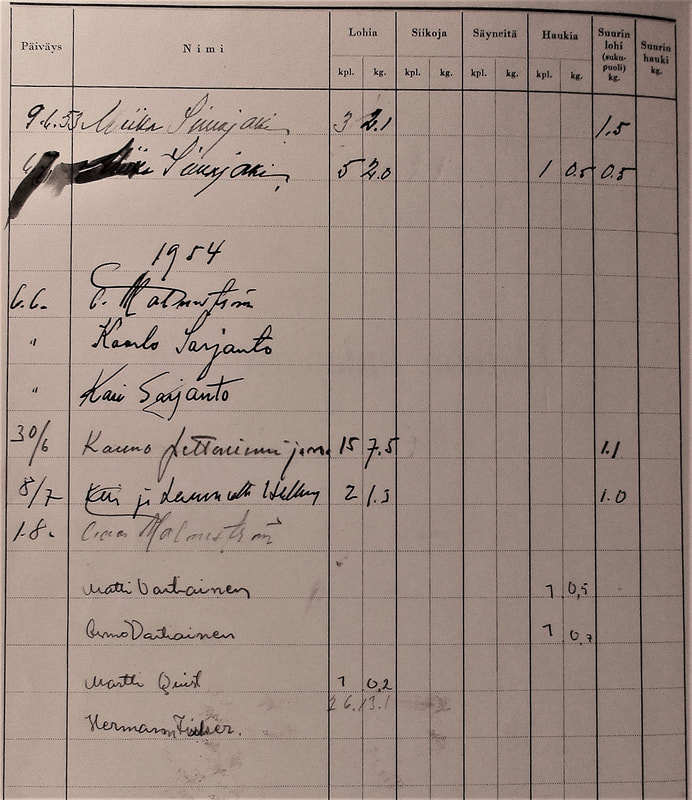 Päiväys Nimi Lohia Siikoja Säyneitä Haukia Suurin lohi (suku-puoli) kg. Suurin hauki kg.
kpl. kg. kpl. kg. kpl. kg. kpl. kg.
9.6.53 Miika Siurajaki 3 2.1 1.5
Miika Siurajaki 5 2.0 1 0.5 0.5
1954
6.6. Malmström
" Kaarlo Sarjanto
" Kari Sarjanto
30/6 Kauno 15 7.5 1.1
8/7 ja 2 1.3 1.0
1.8. Malmström
Matti Vartiainen 1 0,5
Armo Vartiainen 1 0,7
Martti Quist 1 0,2
26. 13.1
Hermann